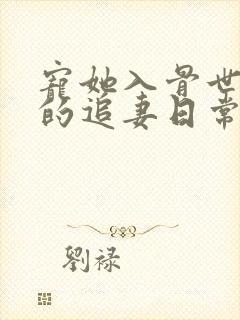 寵她入骨世
的追妻日常
劉祿